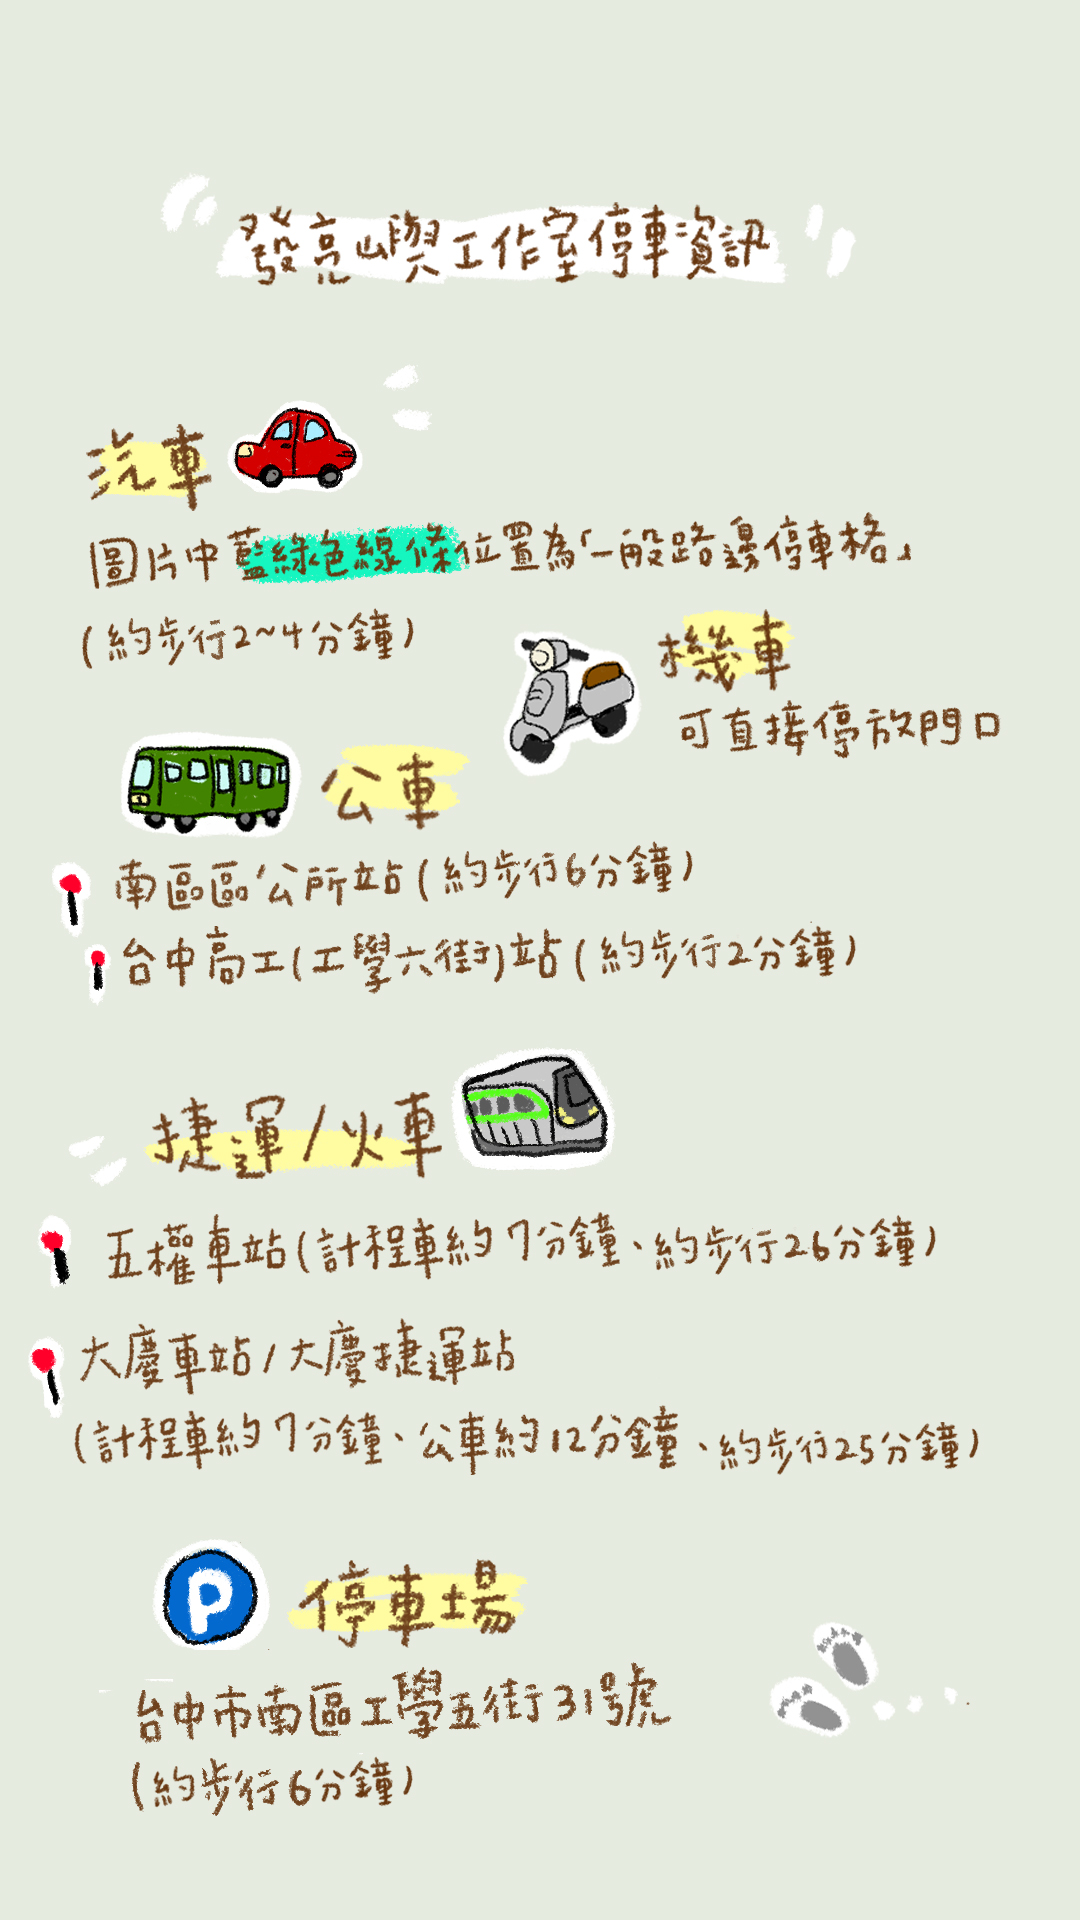 發亮嶼工作室停車資訊
汽車
圖片中藍綠色線條位置為「一般路邊停車格」
(約步行2~4分鐘)
機車
可直接停放門口
公車
南區區公所站(約步行6分鐘)
台中高工(工學六街)站(約步行2分鐘)
捷運/火車
五權車站(計程車約7分鐘、約步行26分鐘)
大慶車站/大慶捷運站
(計程車約7分鐘、公車約12分鐘、約步行25分鐘)
P
停車場
台中市南區工學五街31號
(約步行6分鐘)